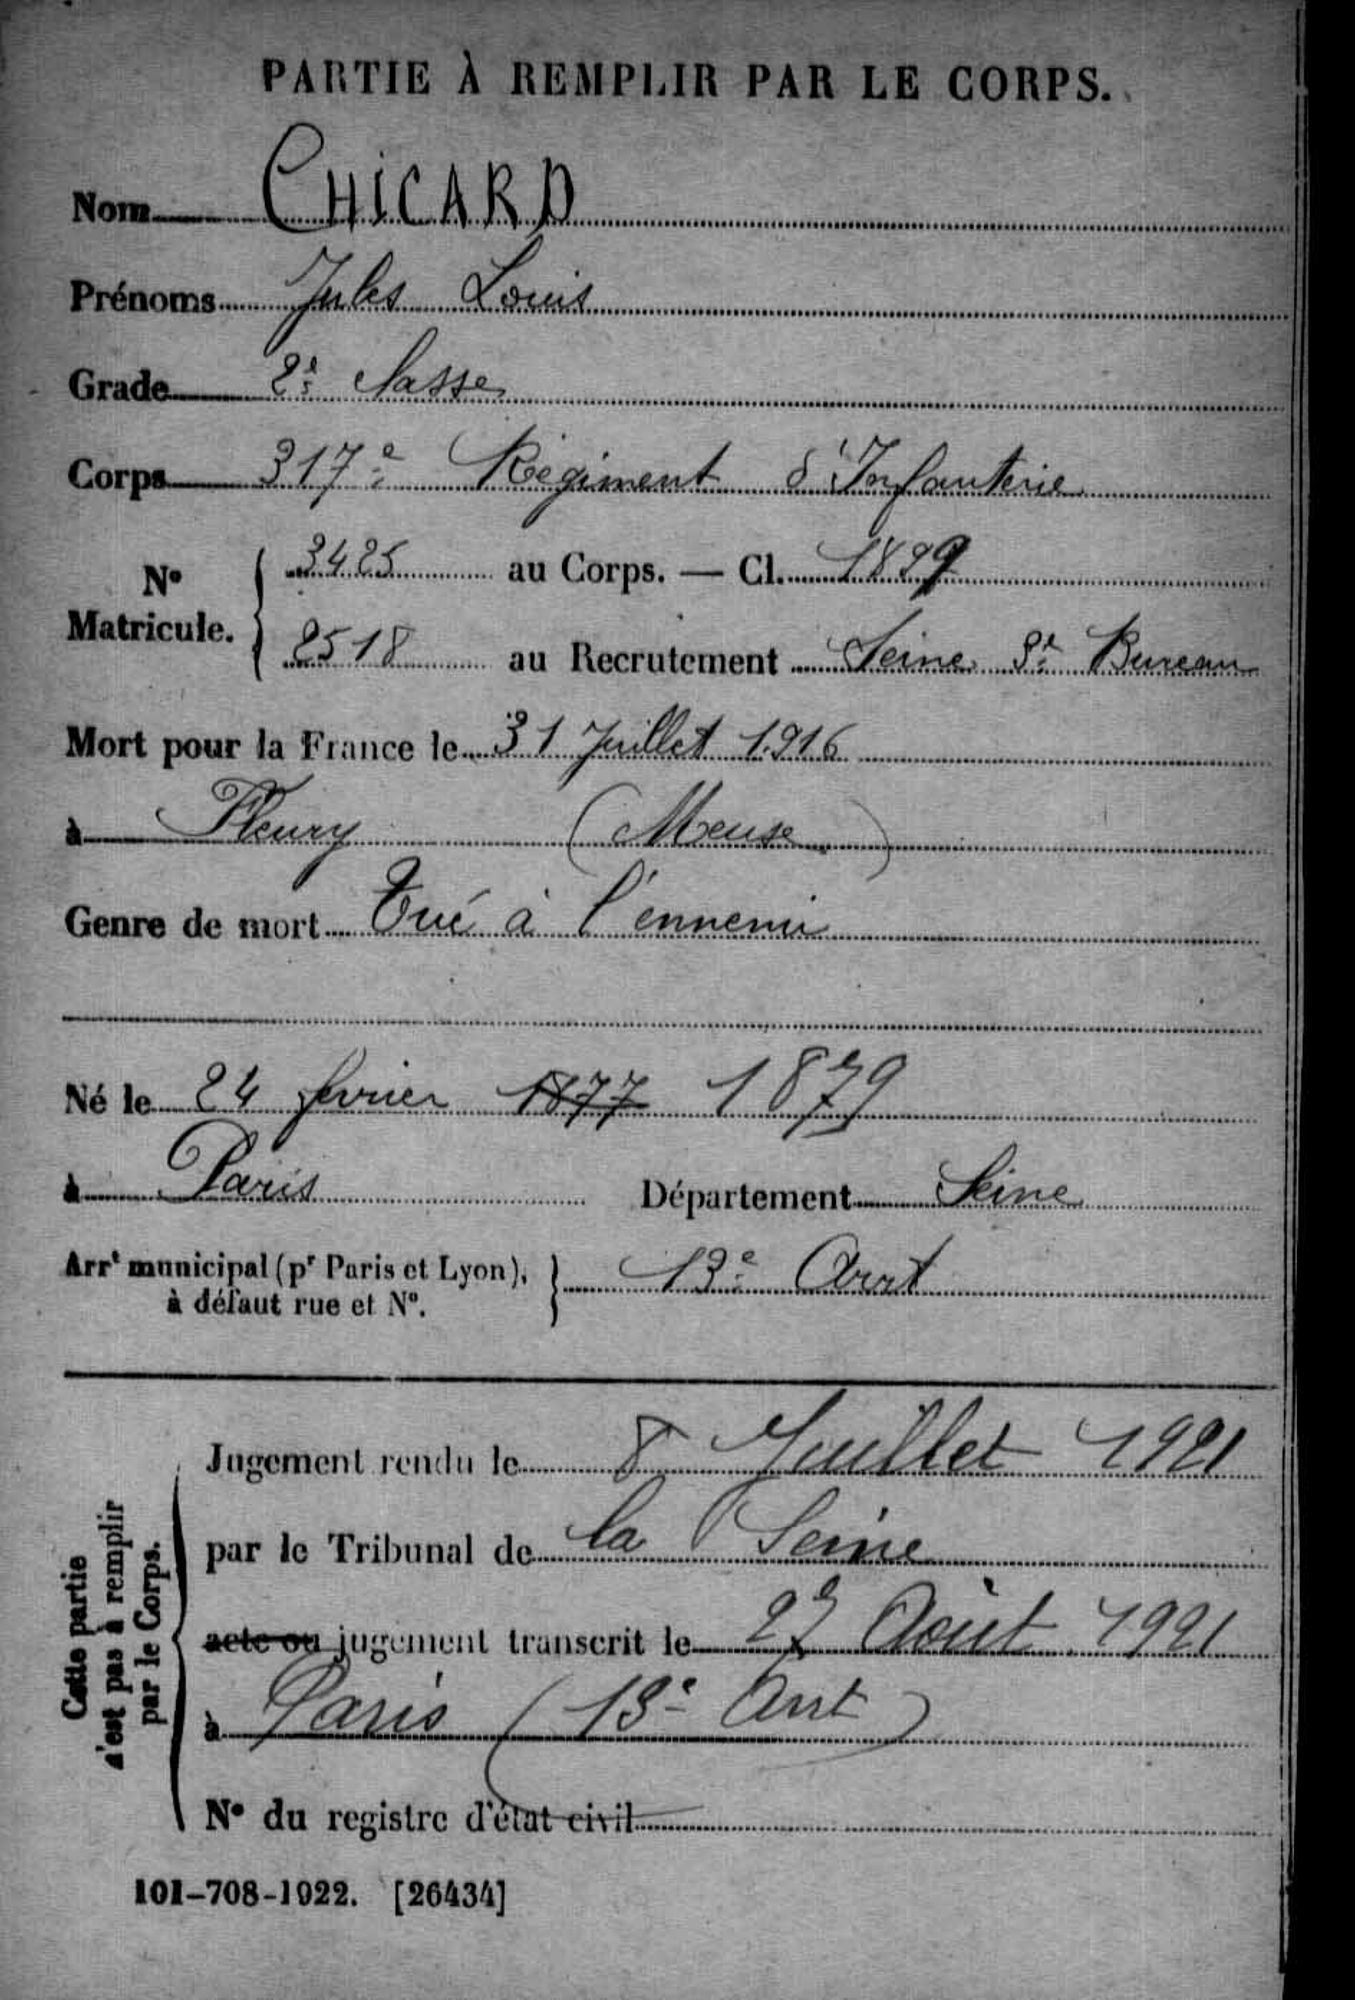 PARTIE À REMPLIR PAR LE CORPS.
Nom CHICARD
Prénoms Jules Louis
Grade 2e classe
Corps 317e Régiment d'Infanterie
No Matricule. { 3425 au Corps. — Cl. 1899
2518 au Recrutement Seine Bureau
Mort pour la France le 31 Juillet 1916
à Fleury (Meuse)
Genre de mort Tué à l'ennemi
Né le 24 février 1877 1879
à Paris Département Seine
Arrt municipal (pr Paris et Lyon), à défaut rue et No. } 13e Arrt
Cette partie n'est pas à remplir par le Corps.
Jugement rendu le 8 Juillet 1921
par le Tribunal de la Seine
acte ou jugement transcrit le Août 1921
à Paris (13e Arrt)
No du registre d'état civil
101-708-1922. [26434]